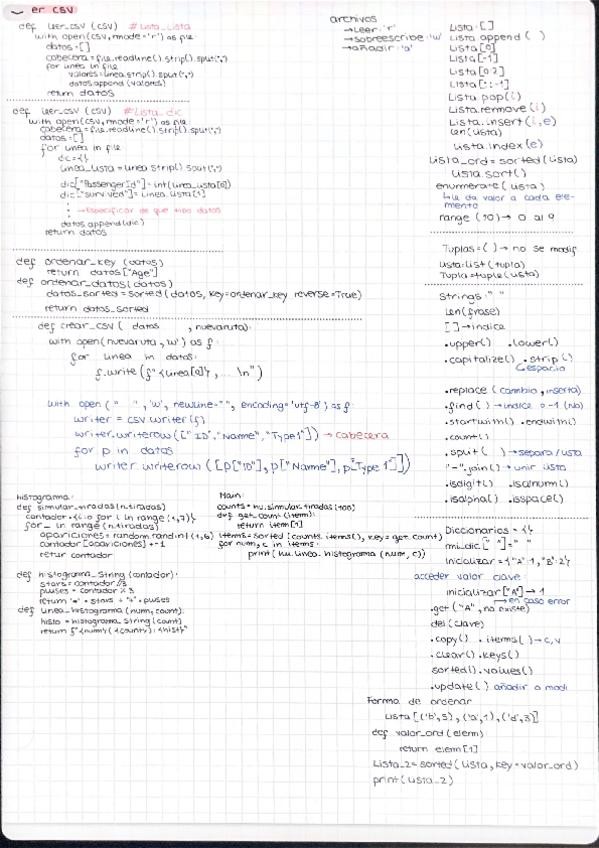 Leer csv
def leer_csv (csv) #Lista_lista
with open(csv, mode='r') as file:
datos=[]
cabecera=file.readline().strip().split(",")
for linea in file
valores=linea.strip().split(",")
datos.append (valores)
return datos
def leer_csv (csv) #Lista_dic
with open(csv, mode='r') as file
cabecera=file.readline().strip().split(",")
datos=[]
for linea in file
dic={}
linea_lista=linea.strip().split(",")
dic["PassengerId"]=int(linea_lista[0])
dic["survived"]=linea_lista[1]
→Especificar de que tipo datos
datos.append(dic)
return datos
def ordenar_key (datos)
return datos["Age"]
def ordenar_datos(datos)
datos_sorted=sorted (datos, key=ordenar_key reverse=True)
return datos_sorted
def crear_csv ( datos , nuevaruta):
with open(nuevaruta,'w') as f:
for linea in datos:
f.write(f"{linea[0]}, ... \n")
with open (" ", 'w', newline="", encoding='utf-8') as f:
writer = csv.writer(f)
writer.writerow(["ID","Name","Type1"]) → cabecera
for p in datos
writer.writerow ([p["ID"], p["Name"], p["Type 1"]])
Histograma:
def simular_tiradas (n.tiradas)
contador={i:0 for i in range (1,7)}
for _ in range (n.tiradas)
apariciones=random.randint(1,6)
contador[apariciones]+=1
retur contador
def histograma_String (contador):
stars=contador//3
pluses=contador%3
return "*" * stars + "+" * pluses
def linea_histograma (num, count):
histo=histograma_string(count)
return f"{num} ({count}): {hist}"
Main:
counts=nu.simular.tiradas(100)
def get_count (item):
return item[1]
items=sorted [counts.items(), key=get.count)
for num,c in items:
print (nu.linea.histograma (num, c))
archivos
→Leer:'r'
→sobreescribe:'w'
→añadir:'a'
Lista:[]
Lista.append ( )
Lista[0]
Lista[-1]
Lista[0:2]
Lista[::-1]
Lista.pop(i)
Lista.remove(i)
Lista.insert(i,e)
len(lista)
lista.index(e)
Lista_ord=sorted(lista)
lista.sort()
enumerate(lista)
↳le da valor a cada ele-
mento
range (10)→ 0 al 9
Tuplas=( )→ no se modif
lista:list(tupla)
Tupla=tuple(lista)
Strings:" "
len(frase)
[]→indice
.upper() .lower()
.capitalize() .strip()
espacio
.replace (cambio, inserta)
.find()→indice o -1 (No)
.startwith() .endwith()
.count()
.split( )→separa/lista
"-".join()→unir lista
.isdigit() .isalnum()
.isalpha() .isspace()
Diccionarios = {}
mi_dic[" "]=" "
inicializar={"A":1,"B":2}
acceder valor clave:
inicializar["A"]→1
→en caso error
.get ("A", no existe)
del(clave)
.copy() .items()→c,v
.clear() .keys()
sorted() .values()
.update() añadir o modi
Forma de ordenar
Lista[('b',5),('a',1),('d',3)]
def valor_ord(elem)
return elem[1]
Lista_2=sorted(lista, key=valor_ord)
print(lista_2)